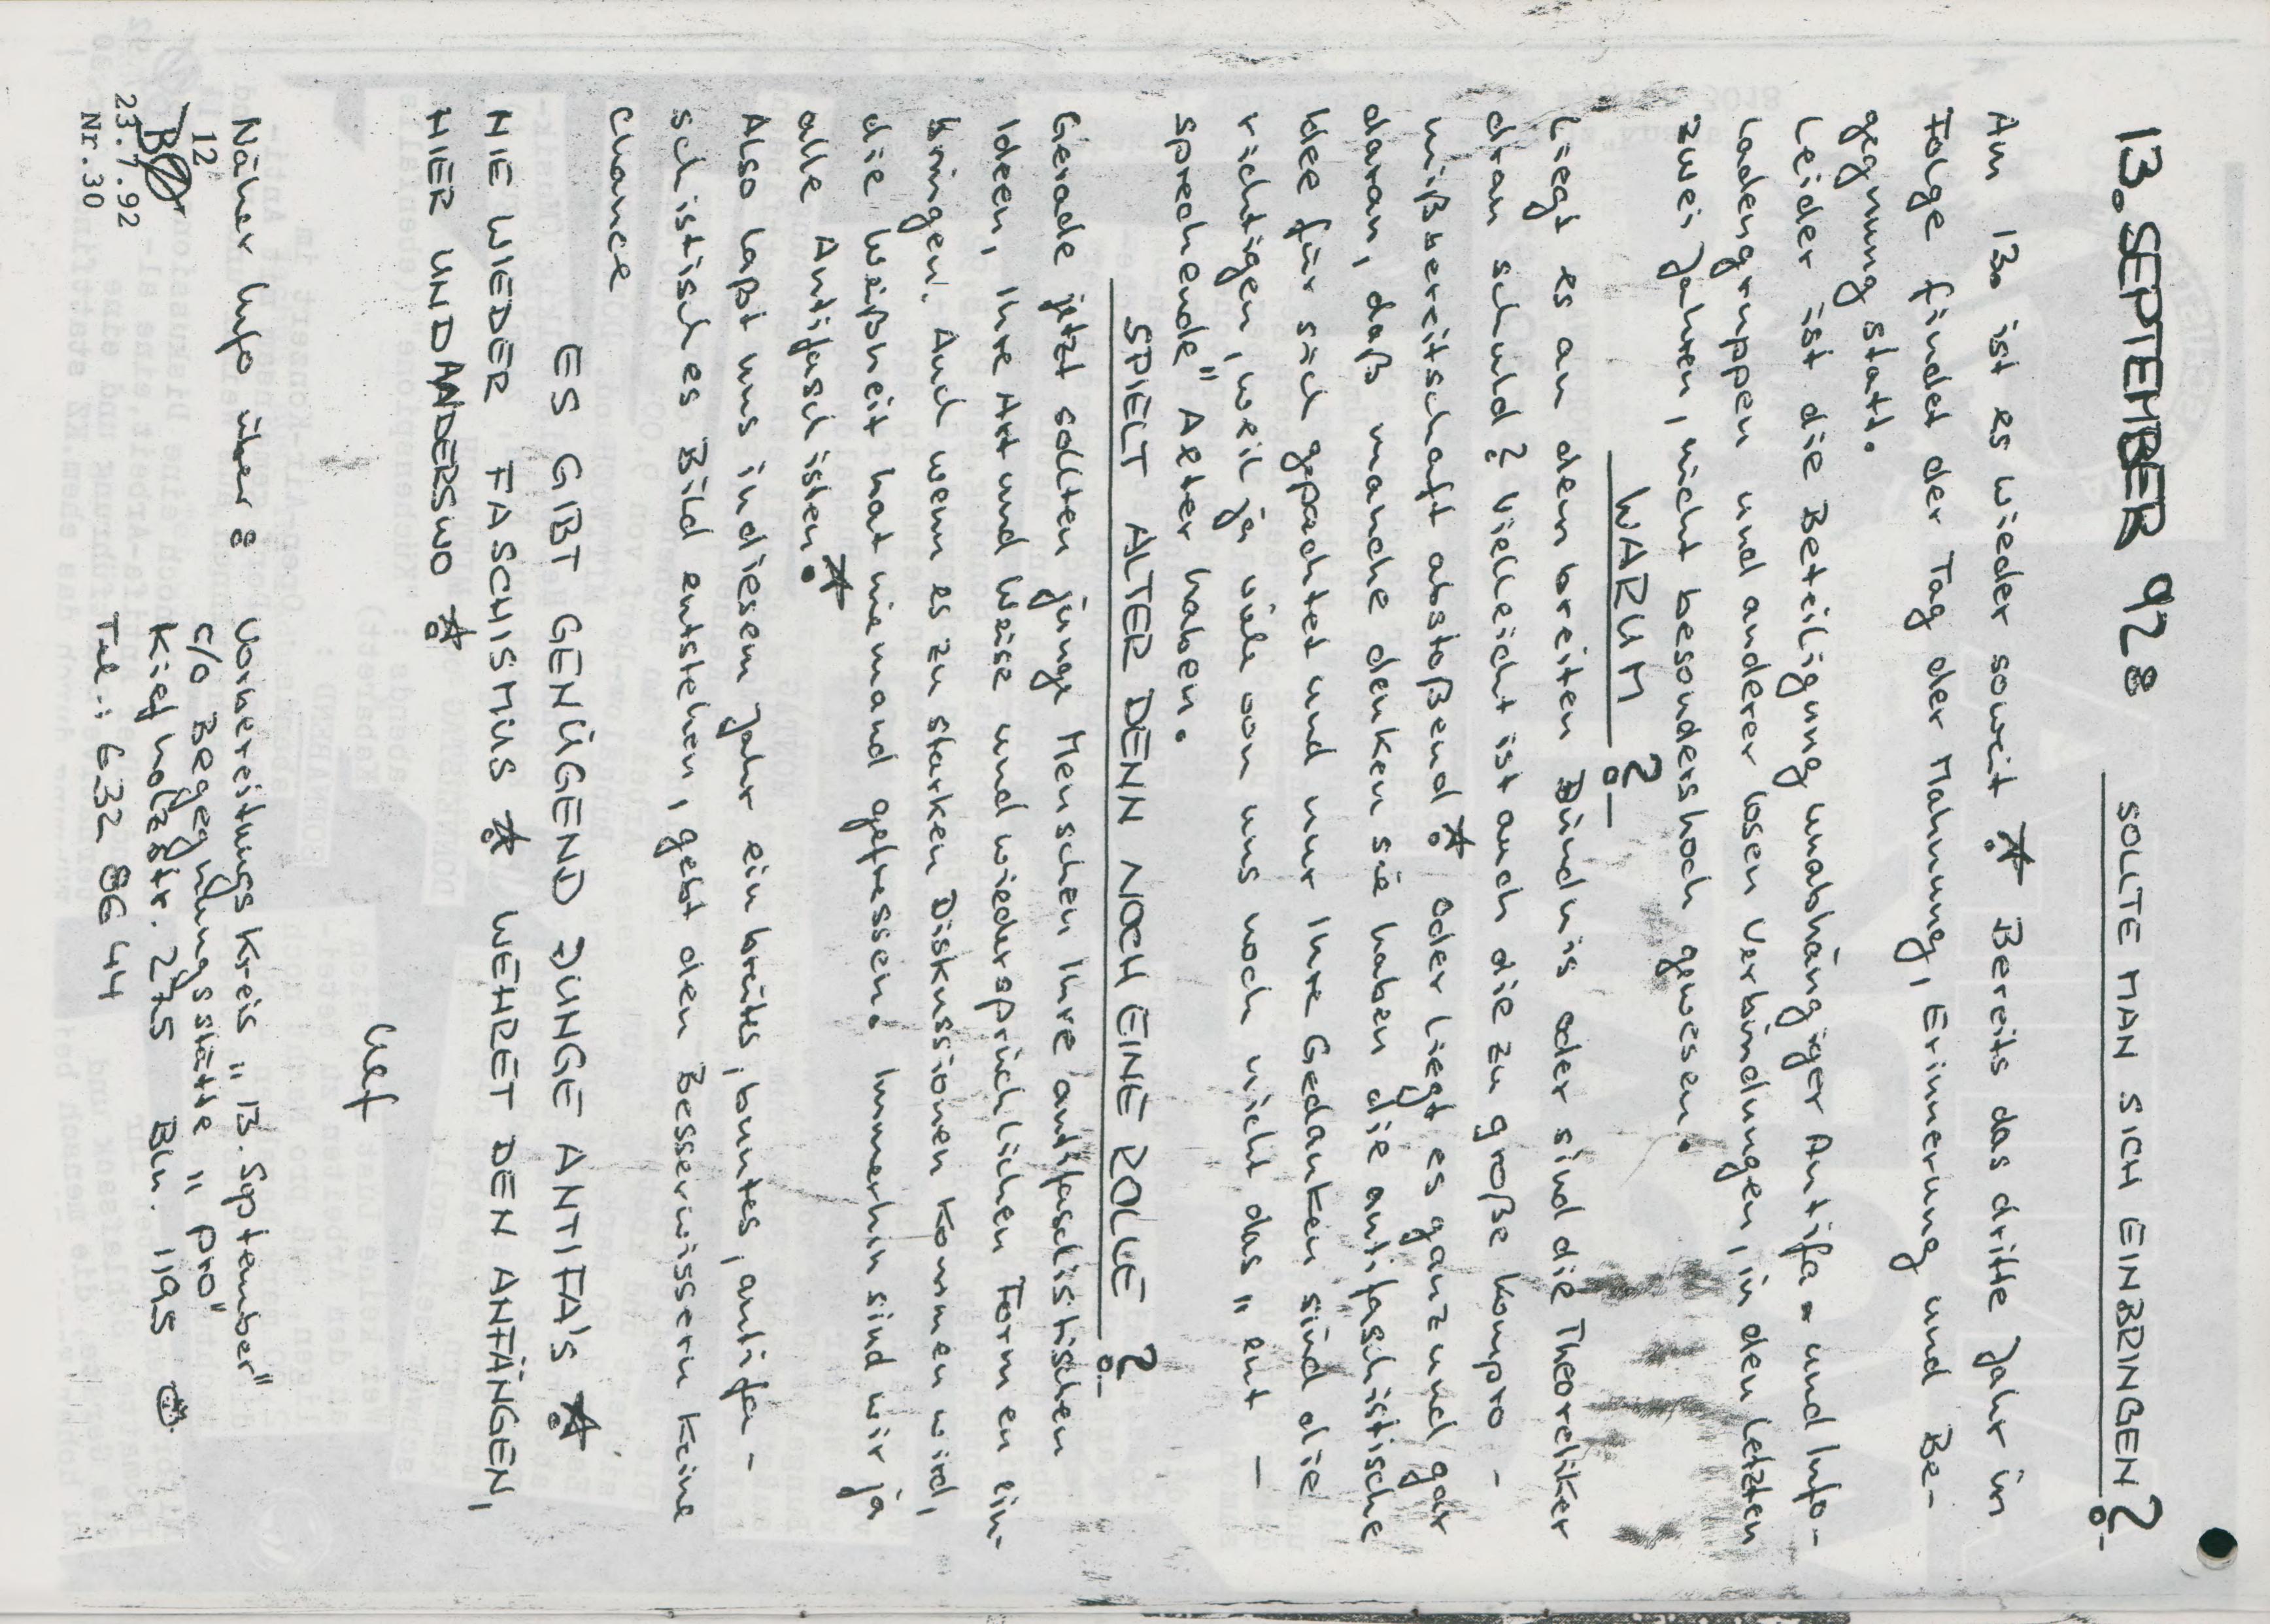 13. SEPTEMBER 92 : SOLLTE MAN SICH EINBRINGEN ?
Am 13. ist es wieder soweit ! Bereits das dritte Jahr in
Folge findet der Tag der Mahnung, Erinnerung und Be-
gegnung statt.
Leider ist die Beteiligung unabhängiger Antifa- und Info-
ladengruppen und anderer losen Verbindungen, in den letzten
zwei Jahren, nicht besonders hoch gewesen.
WARUM ?
Liegt es an dem breiten Bündnis oder sind die Theoretiker
dran schuld? Vielleicht ist auch die zu große Kompro-
mißbereitschaft abstoßend ! Oder liegt es ganz und gar
daran, daß manche denken sie haben die antifaschistische
Idee für sich gepachtet und nur Ihre Gedanken sind die
richtigen, weil ja viele von uns noch nicht das "ent-
sprechende" Aelter haben.
SPIELT ALTER DENN NOCH EINE ROLLE ?
Gerade jetzt sollten junge Menschen Ihre antifaschistischen
Ideen, Ihre Art und Weise und wiedersprüchlichen Formen ein-
bringen. Auch wenn es zu starken Diskussionen kommen wird,
die Weißheit hat niemand gefressen. Immerhin sind wir ja
alle Antifaschisten !
Also laßt uns in diesem Jahr ein breites, buntes, antifa-
schistisches Bild entstehen, gebt den Besserwissern keine
Chance
ES GIBT GENÜGEND JUNGE ANTIFA'S !
NIE WIEDER FASCHISMUS ! WEHRET DEN ANFÄNGEN,
HIER UND ANDERSWO !
Näher Info über : Vorbereitungskreis "13. September"
c/o Begegnungsstätte "pro"
Kiefholzstr. 275 Bln. 1195
Tel.: 632 86 44
12
23.7.92
Nr.30